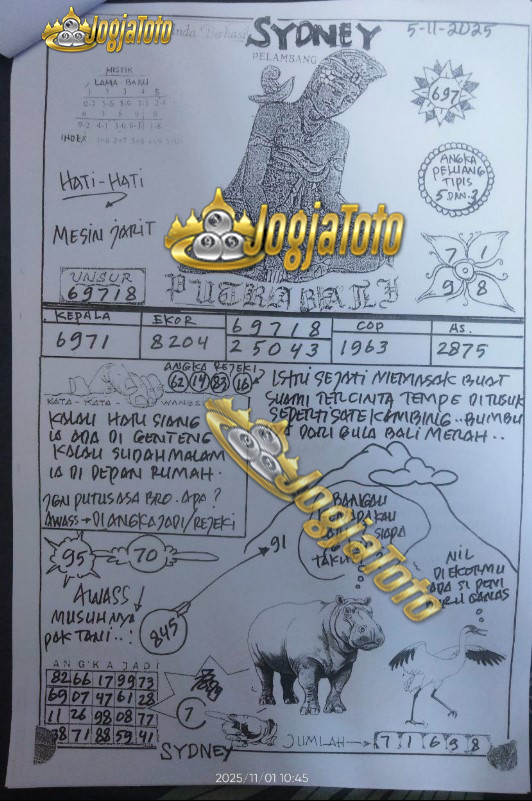 JogjaToto
SYDNEY
5-11-2025
PELAMBANG
MISTIK
LAMA BARU
INDEX
697
HATI-HATI
MESIN JARIT
ANGKA
PELUANG
TIPIS
5 DAN 2
JogjaToto
7 1
9 8
UNSUR
69718
PUTRA BALI
KEPALA
EKOR
69718
COP
AS.
6971
8204
25043
1963
2875
ANGKA REJEKI?
62 14 87 16
KATA - KATA - WANGSIT
KALAU HARI SIANG
IA ADA DI GENTENG
KALAU SUDAH MALAM
IA DI DEPAN RUMAH.
JGN PUTUS ASA BRO. APA?
AWASS → DI ANGKA JADI/REJEKI
ISTRI SEJATI MEMASAK BUAT
SUAMI TERCINTA TEMPE DI TUSUK
SEPERTI SATE KAMBING.. BUMBU
DARI GULA BALI MERAH..
JogjaToto
BANGAU
SIAPA
91
95
70
NIL
DI EKORMU
ADA SI
GANAS
AWASS!
MUSUHNYA
PAK TANI..!
845
ANGKA JADI
82 66 17 99 73
69 07 47 61 28
11 26 98 08 77
38 71 88 59 41
7
SYDNEY
JUMLAH → 7 1 6 9 8
2025/11/01 10:45